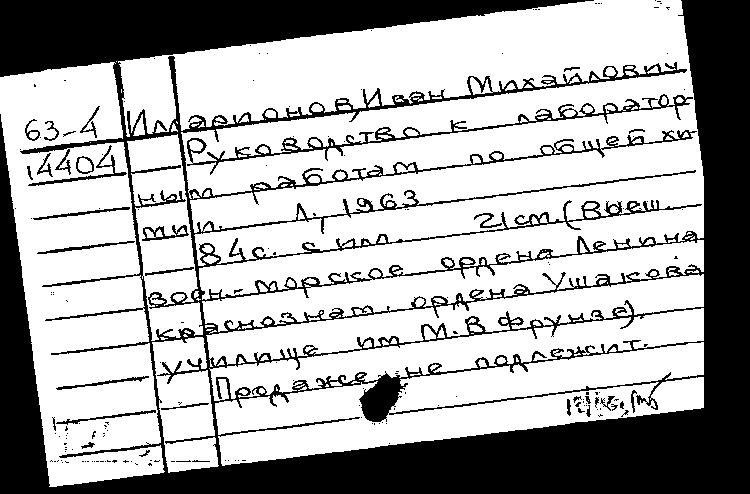 63-4 Илларионов, Иван Михайлович
14404 Руководство к лаборатор-
ным работам по общей хи-
мии. Л., 1963
84с. с илл. 21см. (Высш.
воен.-морское ордена Ленина
краснознам. ордена Ушакова
училище им М.В Фрунзе).
Продаже не подлежит.